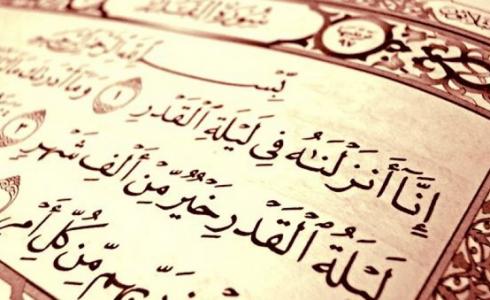 سُورَةُ القَدْرِ
بِسْمِ ٱللَّهِ ٱلرَّحْمَٰنِ ٱلرَّحِيمِ
إِنَّآ أَنزَلْنَٰهُ فِى لَيْلَةِ ٱلْقَدْرِ ١ وَمَآ أَدْرَىٰكَ
لَيْلَةُ ٱلْقَدْرِ خَيْرٌ مِّنْ أَلْفِ شَهْرٍ ٣
رَبِّهِم مِّن كُلِّ أَمْ